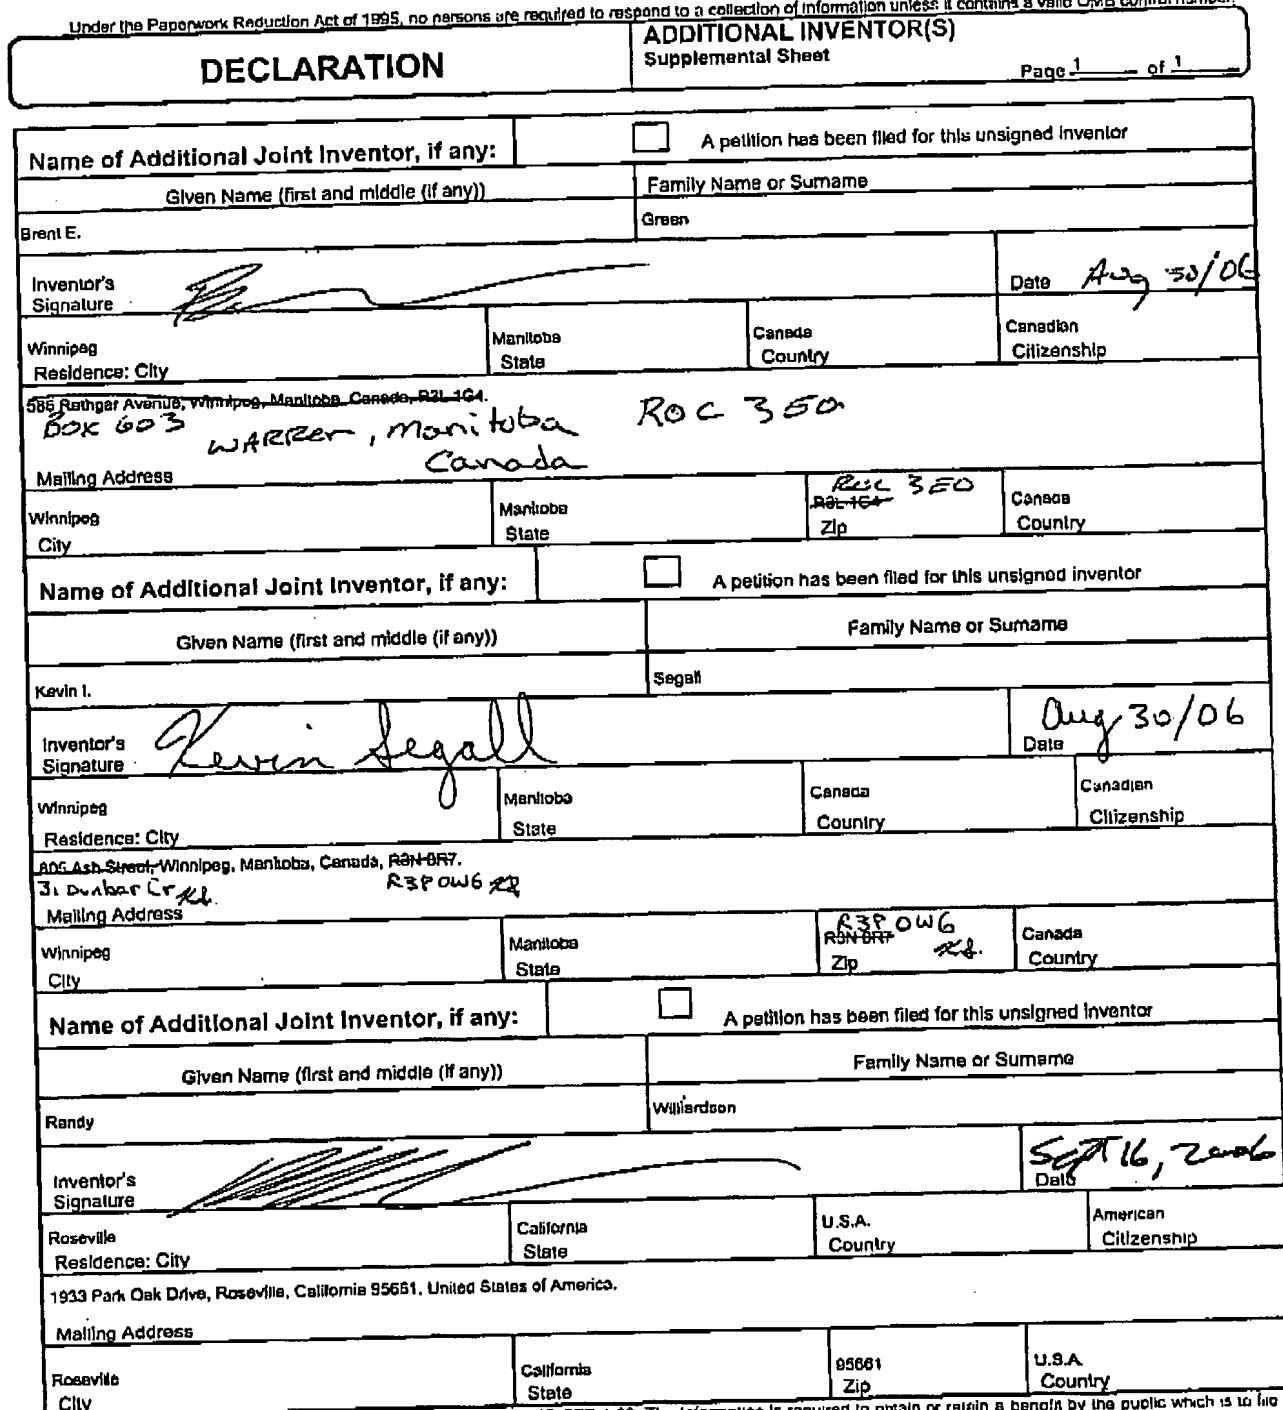 Under the Paperwork Reduction Act of 1995, no persons are required to respond to a collection of information unless it contains a valid OMB control number.
DECLARATION
ADDITIONAL INVENTOR(S)
Supplemental Sheet
Page 1 of 1
Name of Additional Joint Inventor, if any:
A petition has been filed for this unsigned inventor
Given Name (first and middle (if any))
Family Name or Surname
Brent E.
Green
Inventor's
Signature
Date Aug 30/06
Winnipeg
Residence: City
Manitoba
State
Canada
Country
Canadian
Citizenship
586 Rathgar Avenue, Winnipeg, Manitoba, Canada, R3L 1G4.
BOX 603
WARREN, Manitoba
ROC 3E0
Canada
Mailing Address
Winnipeg
City
Manitoba
State
ROC 3E0
R3L 1G4
Zip
Canada
Country
Name of Additional Joint Inventor, if any:
A petition has been filed for this unsigned inventor
Given Name (first and middle (if any))
Family Name or Surname
Kevin I.
Segall
Inventor's
Signature
Kevin Segall
Aug 30/06
Date
Winnipeg
Residence: City
Manitoba
State
Canada
Country
Canadian
Citizenship
805 Ash Street, Winnipeg, Manitoba, Canada, R3N 0R7.
31 Dunbar Cr K.S.
R3P 0W6 KS
Mailing Address
Winnipeg
City
Manitoba
State
R3P 0W6
R3N 0R7 K.S.
Zip
Canada
Country
Name of Additional Joint Inventor, if any:
A petition has been filed for this unsigned inventor
Given Name (first and middle (if any))
Family Name or Surname
Randy
Williardson
Inventor's
Signature
Sept 16, 2006
Date
Roseville
Residence: City
California
State
U.S.A.
Country
American
Citizenship
1933 Park Oak Drive, Roseville, California 95661, United States of America.
Mailing Address
Roseville
City
California
State
95661
Zip
U.S.A.
Country
The information is required to obtain or retain a benefit by the public which is to file